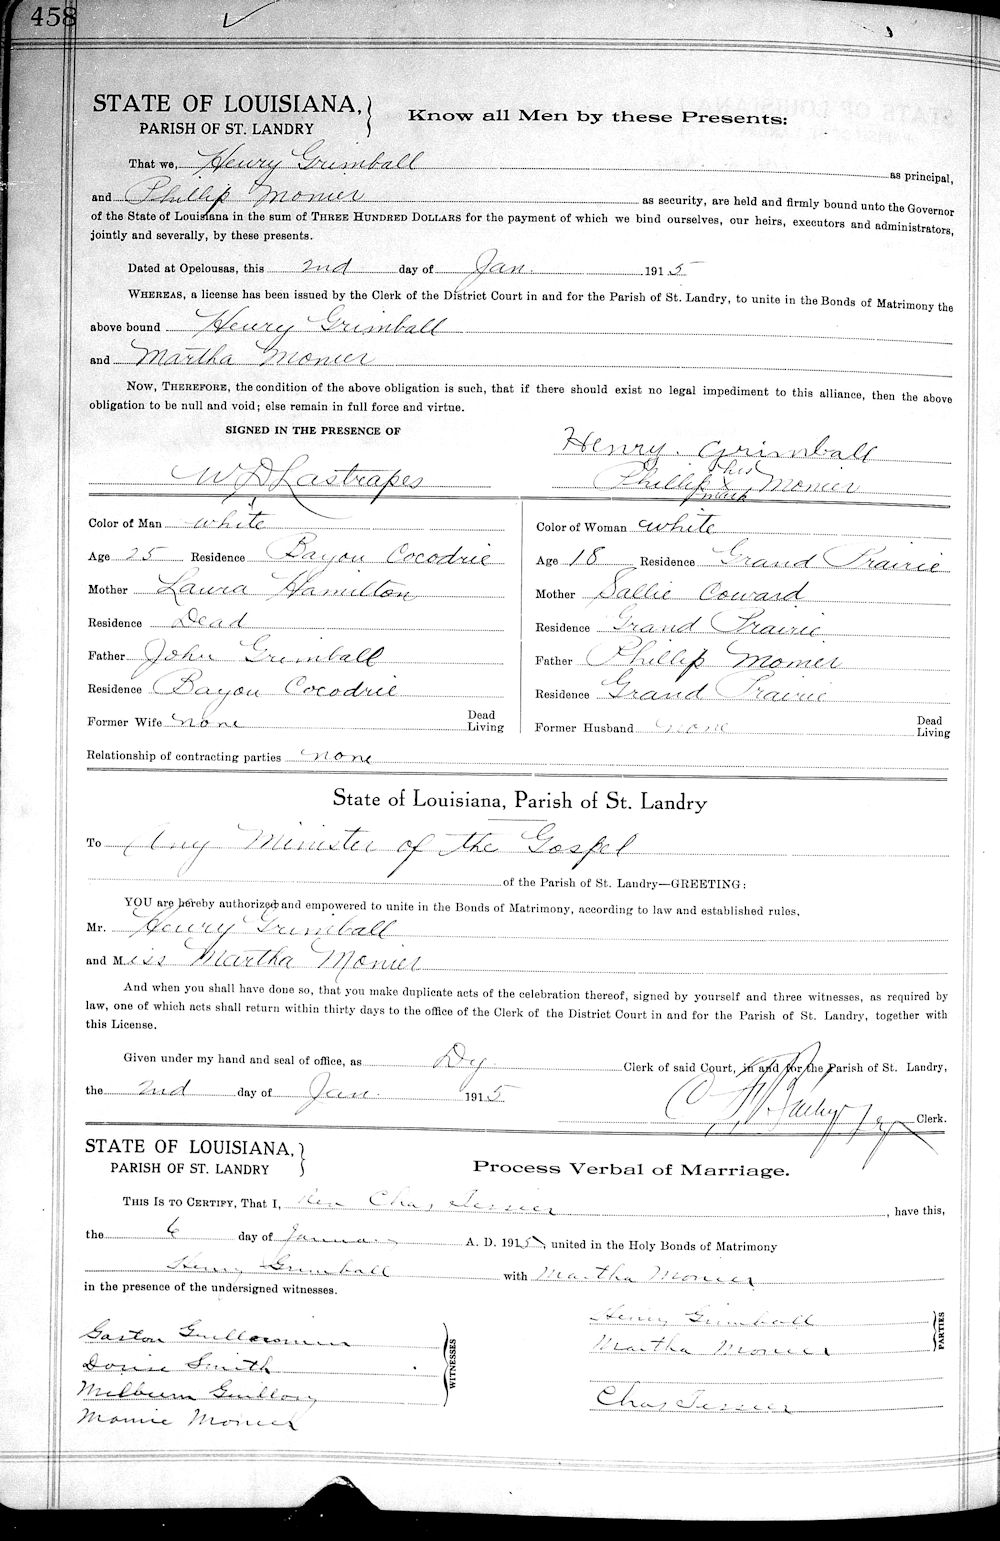 458
STATE OF LOUISIANA,
PARISH OF ST. LANDRY
Know all Men by these Presents:
That we, Henry Grimball as principal,
and Phillip Monier as security, are held and firmly bound unto the Governor
of the State of Louisiana in the sum of THREE HUNDRED DOLLARS for the payment of which we bind ourselves, our heirs, executors and administrators,
jointly and severally, by these presents.
Dated at Opelousas, this 2nd day of Jan. 1915
WHEREAS, a license has been issued by the Clerk of the District Court in and for the Parish of St. Landry, to unite in the Bonds of Matrimony the
above bound Henry Grimball
and Martha Monier
NOW, THEREFORE, the condition of the above obligation is such, that if there should exist no legal impediment to this alliance, then the above
obligation to be null and void; else remain in full force and virtue.
SIGNED IN THE PRESENCE OF
Henry. Grimball
W D Lastrapes
Phillip his x mark Monier
Color of Man white
Age 25 Residence Bayou Cocodrie
Mother Laura Hamilton
Residence Dead
Father John Grimball
Residence Bayou Cocodrie
Former Wife none Dead Living
Color of Woman white
Age 18 Residence Grand Prairie
Mother Sallie Coward
Residence Grand Prairie
Father Phillip Monier
Residence Grand Prairie
Former Husband none Dead Living
Relationship of contracting parties none
State of Louisiana, Parish of St. Landry
To Any Minister of the Gospel
of the Parish of St. Landry—GREETING:
YOU are hereby authorized and empowered to unite in the Bonds of Matrimony, according to law and established rules,
Mr. Henry Grimball
and Miss Martha Monier
And when you shall have done so, that you make duplicate acts of the celebration thereof, signed by yourself and three witnesses, as required by
law, one of which acts shall return within thirty days to the office of the Clerk of the District Court in and for the Parish of St. Landry, together with
this License.
Given under my hand and seal of office, as Dy Clerk of said Court, in and for the Parish of St. Landry,
the 2nd day of Jan. 1915
Clerk.
STATE OF LOUISIANA,
PARISH OF ST. LANDRY
Process Verbal of Marriage.
THIS IS TO CERTIFY, That I, Rev Chas Tessier, have this,
the 6 day of January A. D. 1915, united in the Holy Bonds of Matrimony
Henry Grimball with Martha Monier
in the presence of the undersigned witnesses.
Gaston Guillemin
Smith
Milburn Guillory
Mamie Monier
WITNESSES
Henry Grimball
Martha Monier
PARTIES
Chas Tessier